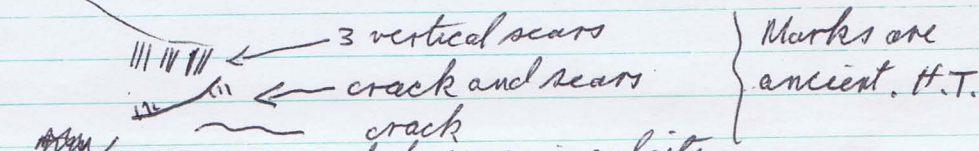 3 vertical scars
crack and scars
crack
Marks are
ancient. H.T.